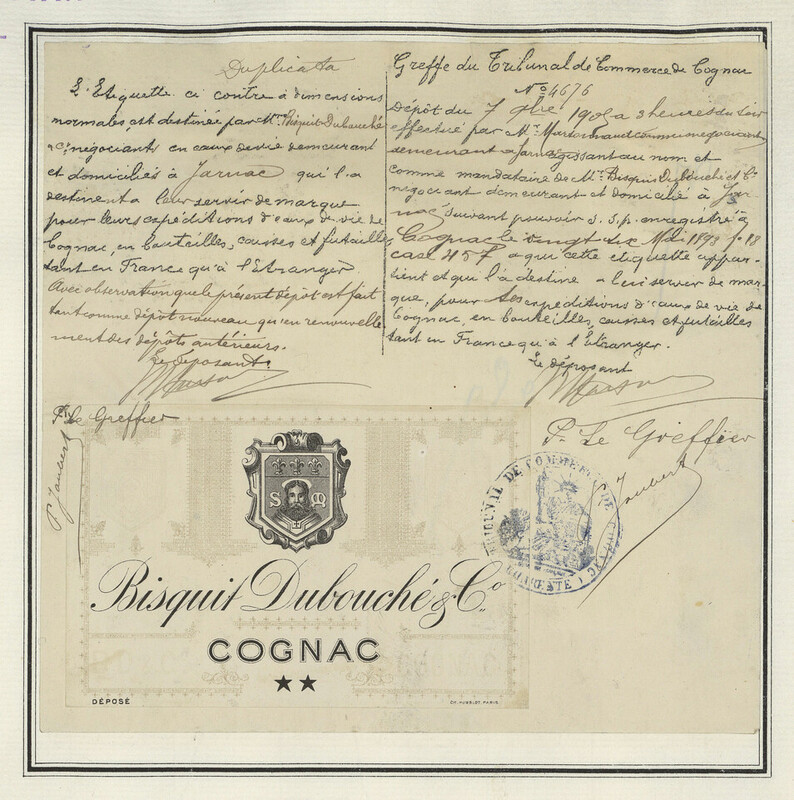 Duplicata
L'Etiquette ci contre à dimensions
normales, est destinée par Mrs Bisquit Dubouché
& Cie négociants en eaux de vie demeurant
et domiciliés à Jarnac qui l'a
destinent a leur servir de marque
pour leurs expéditions d'eaux de vie de
Cognac, en bouteilles, caisses et futailles
tant en France qu'à l'Etranger.
Avec observation que le présent dépôt est fait
tant comme dépôt nouveau qu'en renouvelle
ment des dépôts antérieurs.
Le déposant.
Pr Le Greffier
P. Joubert
Greffe du Tribunal de Commerce de Cognac
No 4676
Dépôt du 7 9bre à 3 heures du soir
effectué par Mr négociant
demeurant à Jarnac agissant au nom et
comme mandataire de Mrs Bisquit Dubouché et Cie
négociant demeurant et domicilié à Jar-
nac, suivant pouvoir s.s.p. enregistré à
Cognac le vingt six Mai 1893 fo 18
case a qui cette étiquette appar-
tient et qui l'a destine a lui servir de mar-
que, pour ses expéditions d'eaux de vie de
Cognac, en bouteilles, caisses et futailles
tant en France qu'à l'Etranger.
Le déposant
Pr Le Greffier
P. Joubert
TRIBUNAL DE COMMERCE DE COGNAC
CHARENTE
S M
Bisquit Dubouché & Co.
COGNAC
★★
DÉPOSÉ
PARIS.